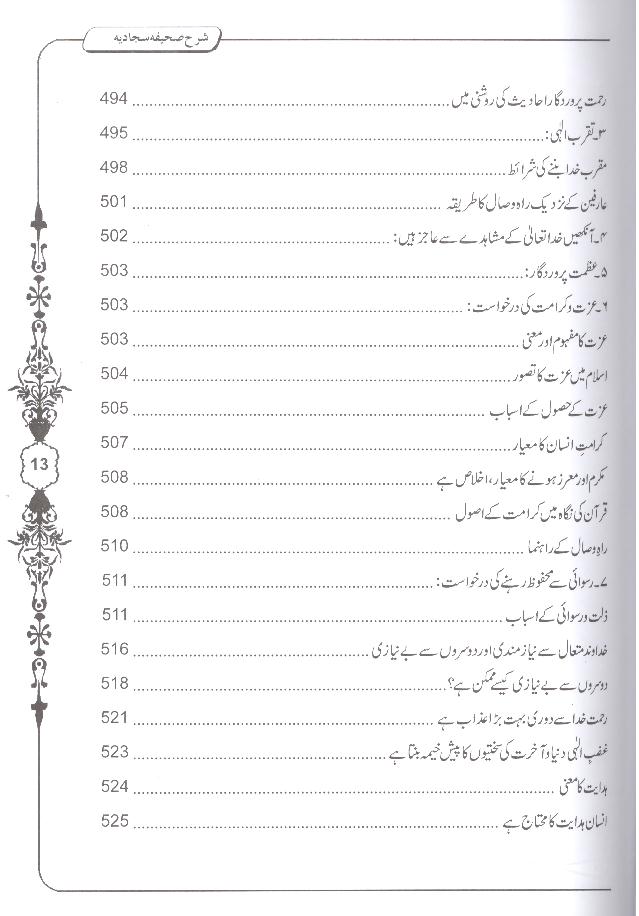 شرح صحیفہ سجادیہ
رحمت پروردگار احادیث کی روشنی میں ........ 494
۳۔تقرب الٰہی: ........ 495
مقرب خدا بننے کی شرائط ........ 498
عارفین کے نزدیک راہ وصال کا طریقہ ........ 501
۴۔آنکھیں خدا تعالیٰ کے مشاہدے سے عاجز ہیں: ........ 502
۵۔عظمت پروردگار: ........ 503
۶۔عزت و کرامت کی درخواست: ........ 503
عزت کا مفہوم اور معنی ........ 503
اسلام میں عزت کا تصور ........ 504
عزت کے حصول کے اسباب ........ 505
کرامتِ انسان کا معیار ........ 507
مکرم اور معزز ہونے کا معیار، اخلاص ہے ........ 508
قرآن کی نگاہ میں کرامت کے اصول ........ 508
راہ وصال کے راہنما ........ 510
۷۔رسوائی سے محفوظ رہنے کی درخواست: ........ 511
ذلت و رسوائی کے اسباب ........ 511
خداوند متعال سے نیاز مندی اور دوسروں سے بے نیازی ........ 516
دوسروں سے بے نیازی کیسے ممکن ہے؟ ........ 518
رحمت خدا سے دوری بہت بڑا عذاب ہے ........ 521
غضبِ الٰہی دنیا و آخرت کی سختیوں کا پیش خیمہ بنتا ہے ........ 523
ہدایت کا معنی ........ 524
انسان ہدایت کا محتاج ہے ........ 525
13